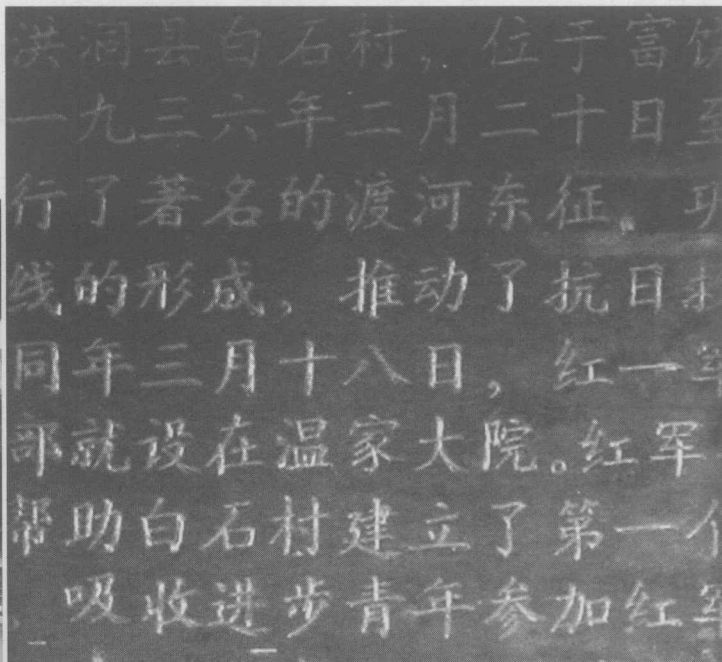 洪洞县白石村，位于富饶
一九三六年二月二十日至
行了著名的渡河东征。
线的形成，推动了抗日
同年三月十八日，红一军
部就设在温家大院。红军
帮助白石村建立了第一个
吸收进步青年参加红军